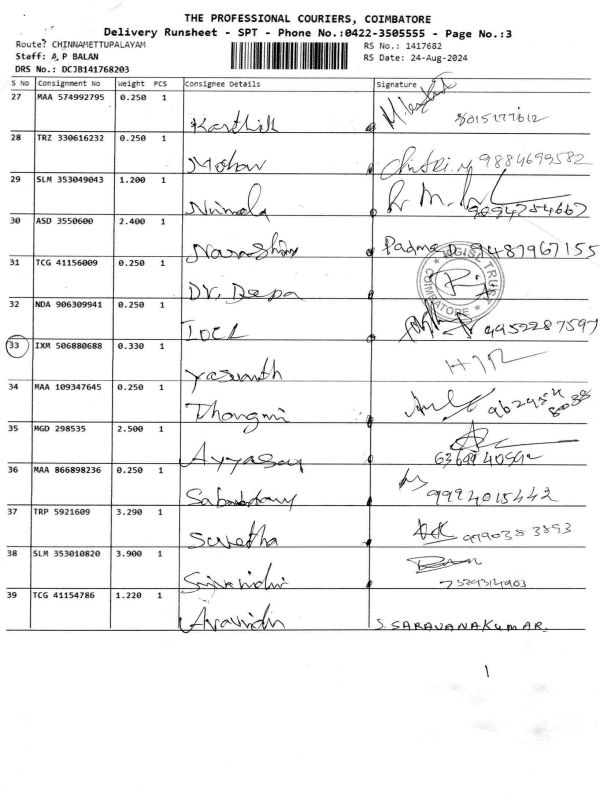 THE PROFESSIONAL COURIERS, COIMBATORE
Delivery Runsheet - SPT - Phone No.:0422-3505555 - Page No.:3
Route: CHINNAMETTUPALAYAM RS No.: 1417682
Staff: A P BALAN RS Date: 24-Aug-2024
DRS No.: DCJB141768203
S No Consignment No Weight PCS Consignee Details Signature
27 MAA 574992795 0.250 1 Karthik 8015177612
28 TRZ 330616232 0.250 1 Mohan 9884699582
29 SLM 353049043 1.200 1 Nirmala 9094784667
30 ASD 3550600 2.400 1 Narashim Padma 9487967155
31 TCG 41156009 0.250 1 Dr. Deepa
COIMBATORE TRUST
32 NDA 906309941 0.250 1 IOCL 9952287597
33 IXM 506880688 0.330 1 Yaswanth
34 MAA 109347645 0.250 1 Thangmi
35 MGD 298535 2.500 1 Ayyasay
36 MAA 866898236 0.250 1 9994015442
37 TRP 5921609 3.290 1 Suvetha
38 SLM 353010820 3.900 1 Srinidhi
39 TCG 41154786 1.220 1 Aravindh S. SARAVANAKUMAR
1